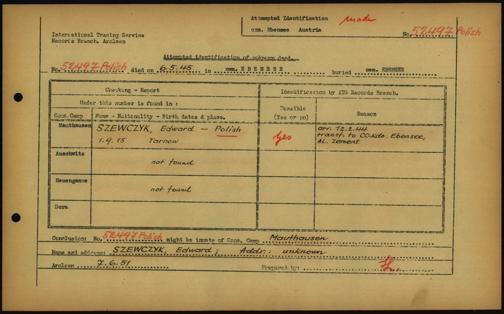 Attempted Identification made
cem. Ebensee Austria
No. 52497 Polish
International Tracing Service
Records Branch. Arolsen
Attempted identification of unknown dead.
No. 52497 Polish died on 6.5.45 in cem. EBENSEE buried cem. EBENSEE
Checking - Report
Identification by ITS Records Branch.
Under this number is found in:
Possible (Yes or no)
Reason
Conc.Camp Name - Nationality - Birth dates & place.
Mauthausen SZEWCZYK, Edward - Polish
1.9.15 Tarnow
Yes
arr. 12.2.44
transf. to CO.Kdo. Ebensee,
AL. Zement
Auschwitz
not found
Neuengamme
not found
Dora
Conclusion: No. 52497 Polish might be inmate of Conc. Camp Mauthausen
Name and address: SZEWCZYK, Edward; Addr: unknown
Arolsen 7.6.51 Prepared by: